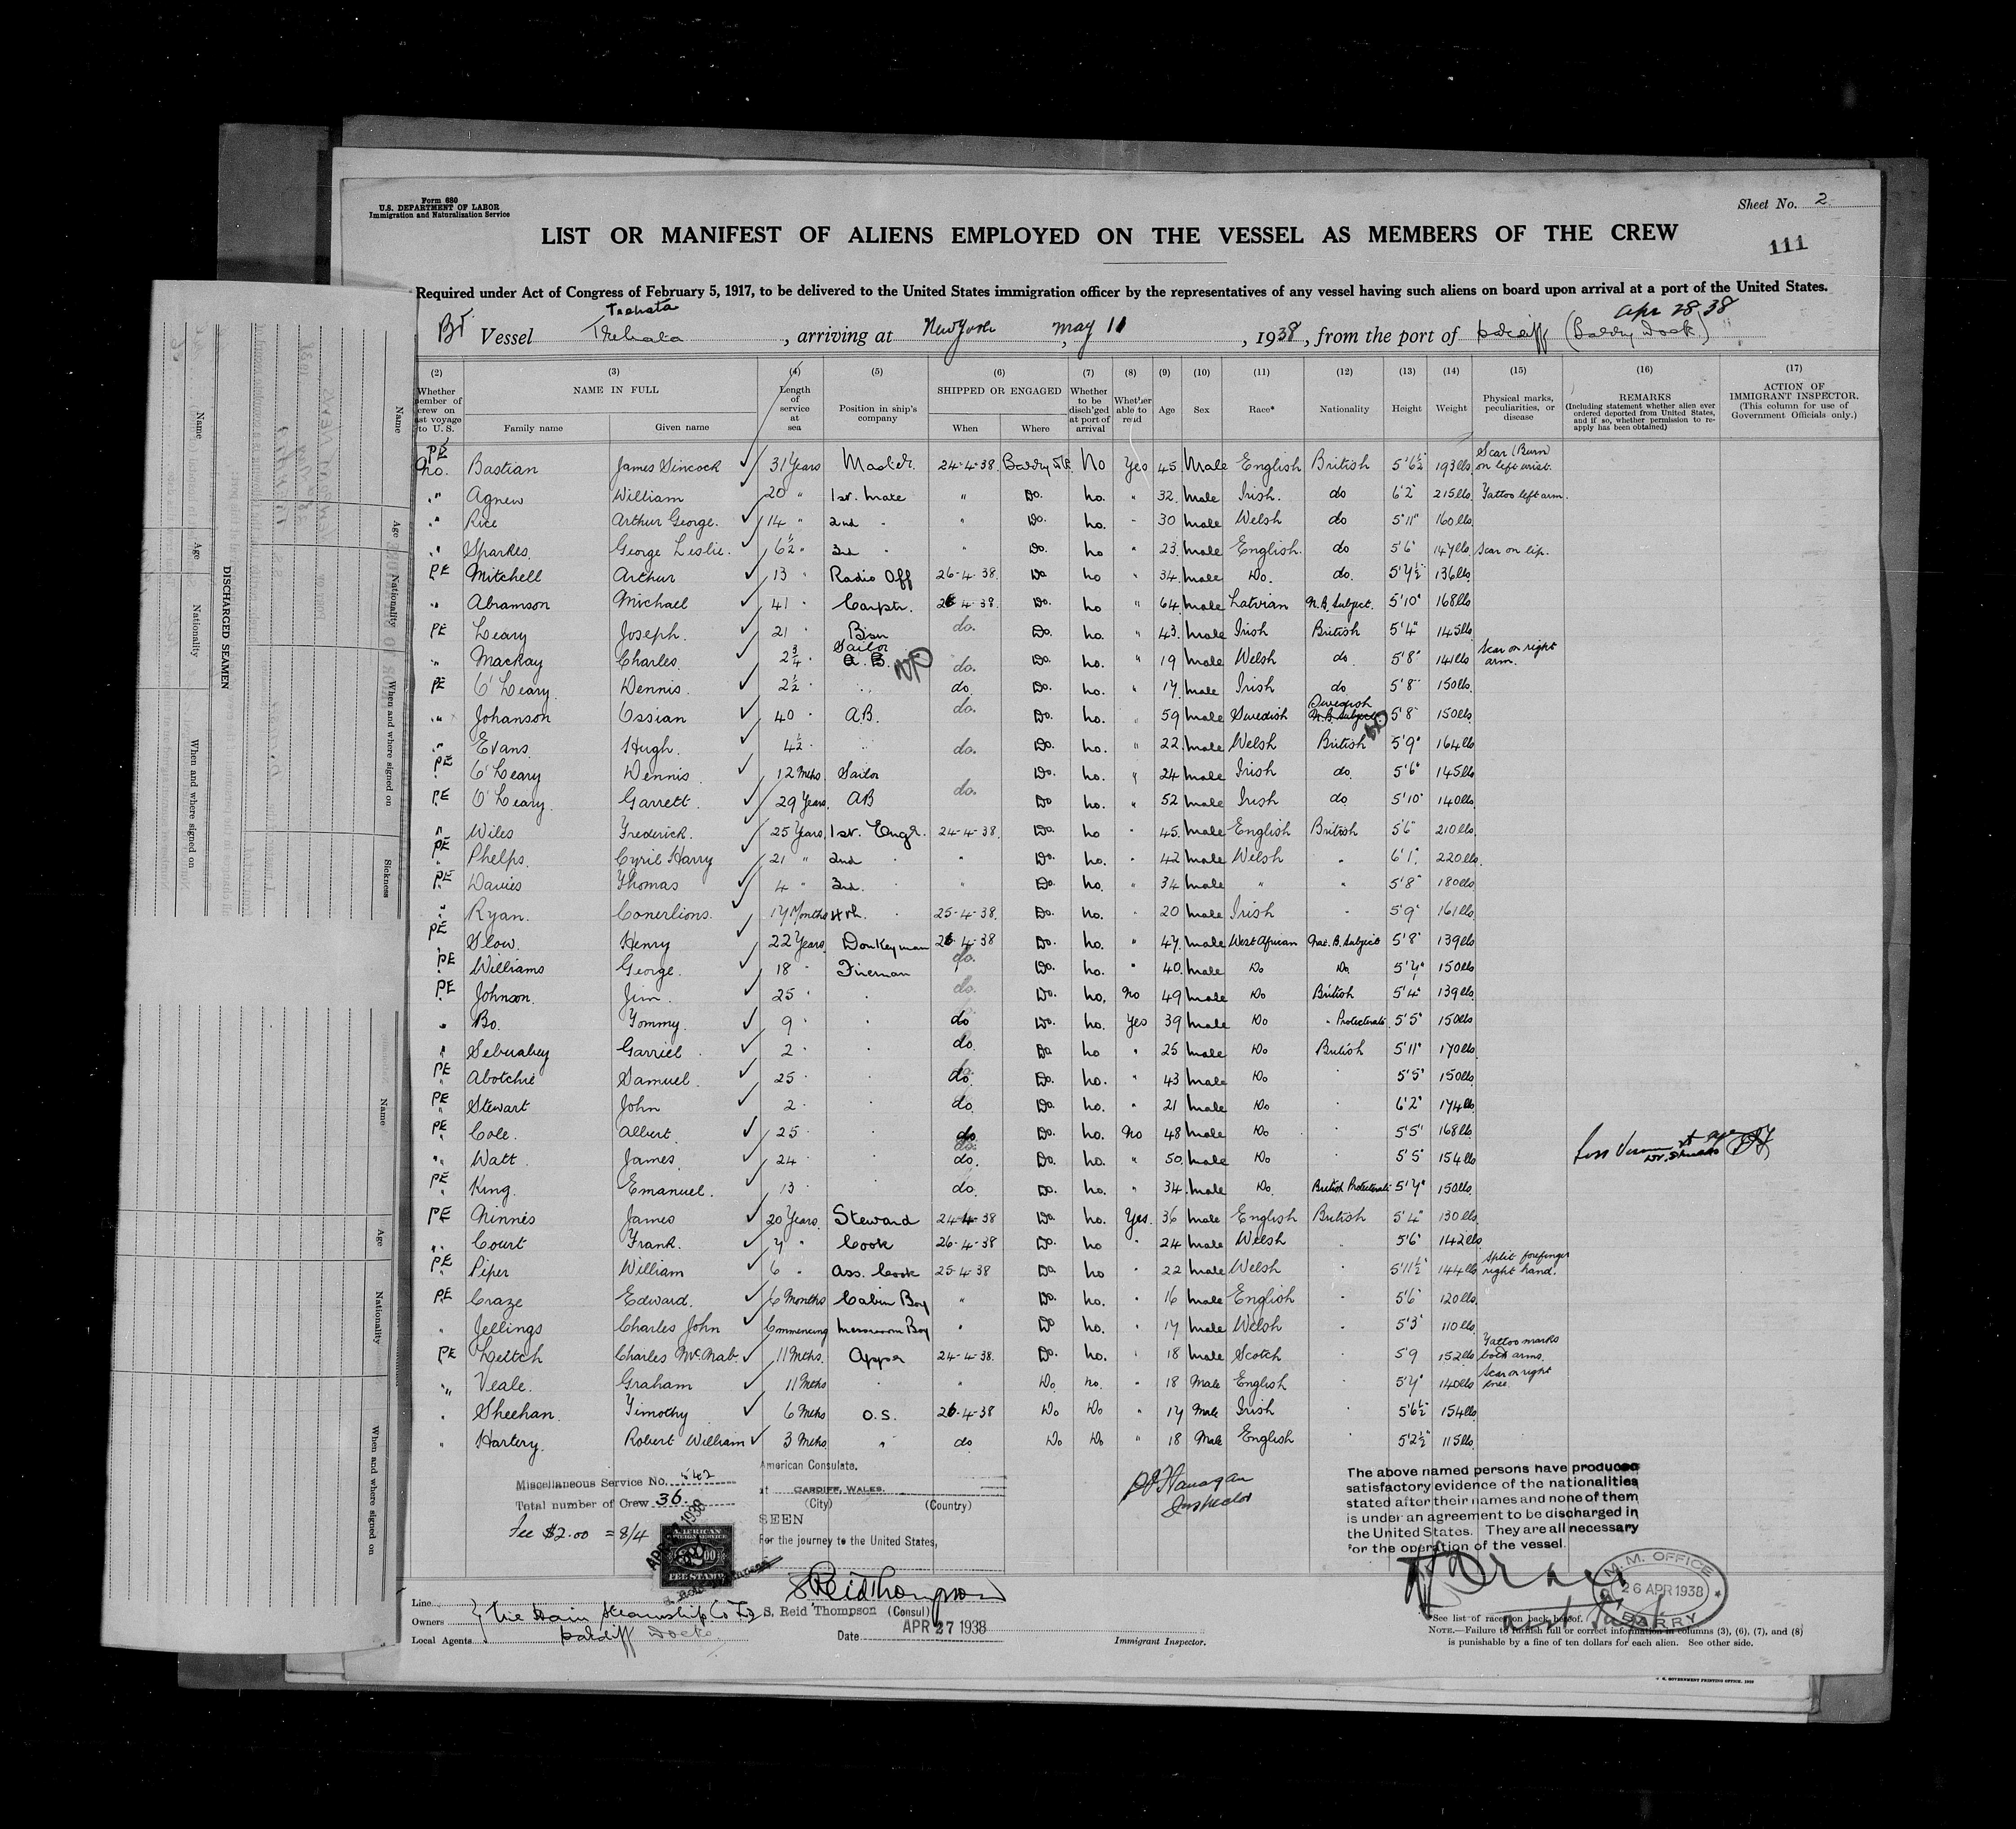 Form 680
U.S. DEPARTMENT OF LABOR
Immigration and Naturalization Service
Sheet No. 2
LIST OR MANIFEST OF ALIENS EMPLOYED ON THE VESSEL AS MEMBERS OF THE CREW
111
Required under Act of Congress of February 5, 1917, to be delivered to the United States immigration officer by the representatives of any vessel having such aliens on board upon arrival at a port of the United States.
Trehata
Apr 28 38
Br Vessel Trehata, arriving at New York, May 11, 1938, from the port of Cardiff (Barry Dock)
(2) (3) (4) (5) (6) (7) (8) (9) (10) (11) (12) (13) (14) (15) (16) (17)
NAME IN FULL
Family name Given name
Length of service at sea
Position in ship's company
SHIPPED OR ENGAGED
When Where
Whether to be disch'ged at port of arrival
Whether able to read
Age Sex Race* Nationality Height Weight
Physical marks, peculiarities, or disease
REMARKS
(Including statement whether alien ever ordered deported from United States, and if so, whether permission to reapply has been obtained)
ACTION OF IMMIGRANT INSPECTOR.
(This column for use of Government Officials only.)
PE No. Bastian James Sincock 31 Years Master 24-4-38 Barry Dk No Yes 45 Male English British 5'6½ 193 lbs Scar (Burn) on left wrist.
" Agnew William 20 " 1st. Mate " Do. No. " 32 Male Irish. do 6'2" 215 lbs Tattoo left arm.
" Rice Arthur George. 14 " 2nd " " Do. No. " 30 Male Welsh do 5'11" 160 lbs
" Sparkes. George Leslie. 6½ " 3rd " " Do. No " 23 Male English. do 5'6" 147 lbs Scar on lip.
PE Mitchell Arthur 13 " Radio Off 26-4-38. Do No " 34 Male Do. do. 5'7½ 136 lbs
" Abramson Michael 41 " Carptr. 26-4-38. Do. No " 64 Male Latvian N.B. Subject. 5'10" 168 lbs
PE Leary Joseph. 21 " Bsn do. Do. No. " 43 Male Irish British 5'4" 145 lbs
" Mackay Charles. 2¾ " Sailor A.B. do. Do. No. " 19 Male Welsh do 5'8" 141 lbs Scar on right arm.
PE O'Leary Dennis. 2½ " do. Do. No. " 17 Male Irish do 5'8" 150 lbs
" Johanson Ossian 40 " AB. do. Do. No. " 59 Male Swedish Swedish N.B. Subject 5'8" 150 lbs
" Evans. Hugh. 4½ " do. Do. No. " 22 Male Welsh British 5'9" 164 lbs
PE O'Leary Dennis 12 Mths Sailor Do. No. " 24 Male Irish do. 5'6" 145 lbs
PE O'Leary. Garrett. 29 Years. AB do. Do No. " 52 Male Irish do. 5'10" 140 lbs
" Wiles Frederick. 25 Years. 1st. Engr. 24-4-38. Do. No " 45 Male English British 5'6" 210 lbs
PE Phelps. Cyril Harry 21 " 2nd " " Do. No. " 42 Male Welsh " 6'1" 220 lbs.
PE Davies Thomas 4 " 3rd. " " Do. No. " 34 Male " " 5'8" 180 lbs
" Ryan. 17 Months 4th. " 25-4-38. Do. No. " 20 Male Irish " 5'9" 161 lbs
PE Slow. Henry 22 Years Donkeyman 26-4-38 Do. No. " 47 Male West African Nat. B. Subject 5'8" 139 lbs
PE Williams George. 18 " Fireman do. Do. No. " 40 Male Do Do 5'7" 150 lbs
PE Johnson. Jim. 25 " " do. Do. No. No 49 Male Do British 5'4" 139 lbs
" Bo. Tommy. 9 " " do Do. No. Yes 39 Male Do " Protectorate 5'5" 150 lbs
" Garriel 2 " " do. Do No " 25 Male Do British 5'11" 170 lbs
PE Abotchie Samuel. 25 " " do. Do. No. " 43 Male Do " 5'5" 150 lbs
PE Stewart John 2 " " do. Do. No. " 21 Male Do " 6'2" 174 lbs
PE Cole. Albert. 25 " " do. Do. No. No 48 Male Do " 5'5" 168 lbs
" Watt James. 24 " " do. Do. No. " 50 Male Do " 5'5" 154 lbs
PE King. Emanuel. 13 " " do. Do. No. " 34 Male Do. British Protectorate 5'7" 150 lbs
PE Ninnes James 20 Years. Steward 24-4-38 Do No. Yes. 36 Male English British 5'4" 130 lbs
" Court Frank. 7 " Cook 26-4-38 Do. No " 24 Male Welsh " 5'6" 142 lbs
PE Piper William 6 " Ass. Cook 25-4-38 Do No " 22 Male Welsh " 5'11½ 144 lbs Split forefinger right hand.
PE Craze Edward. 6 Months Cabin Boy " Do. No. " 16 Male English " 5'6" 120 lbs.
" Jellings Charles John Commencing Messroom Boy " Do No. " 17 Male Welsh " 5'3" 110 lbs
PE Leitch Charles McNab. 11 Mths. Appr 24-4-38. Do. No. " 18 Male Scotch " 5'9 152 lbs Tattoo marks both arms.
" Veale. Graham 11 Mths " " Do No. " 18 Male English " 5'7" 140 lbs Scar on right knee.
" Sheehan. Timothy 6 Mths O.S. 26-4-38 Do Do " 17 Male Irish " 5'6½ 154 lbs
" Hartery. Robert William 3 Mths " do Do Do " 18 Male English " 5'2½ 115 lbs
Miscellaneous Service No. 542
Total number of Crew 36.
Fee $2.00 = 8/4
American Consulate.
at CARDIFF, WALES.
(City) (Country)
SEEN
For the journey to the United States,
S Reid Thompson
S. Reid Thompson (Consul)
Date APR 27 1938
Flanagan
Inspector
Immigrant Inspector.
The above named persons have produced
satisfactory evidence of the nationalities
stated after their names and none of them
is under an agreement to be discharged in
the United States. They are all necessary
for the operation of the vessel.
M.M. OFFICE
26 APR 1938
BARRY
Line
Owners The Hain Steamship Co Ltd
Local Agents Cardiff Docks
*See list of races on back hereof.
NOTE.—Failure to furnish full or correct information in columns (3), (6), (7), and (8)
is punishable by a fine of ten dollars for each alien. See other side.
DISCHARGED SEAMEN
Name Age Nationality When and where signed on Sickness
Name Age Nationality When and where signed on